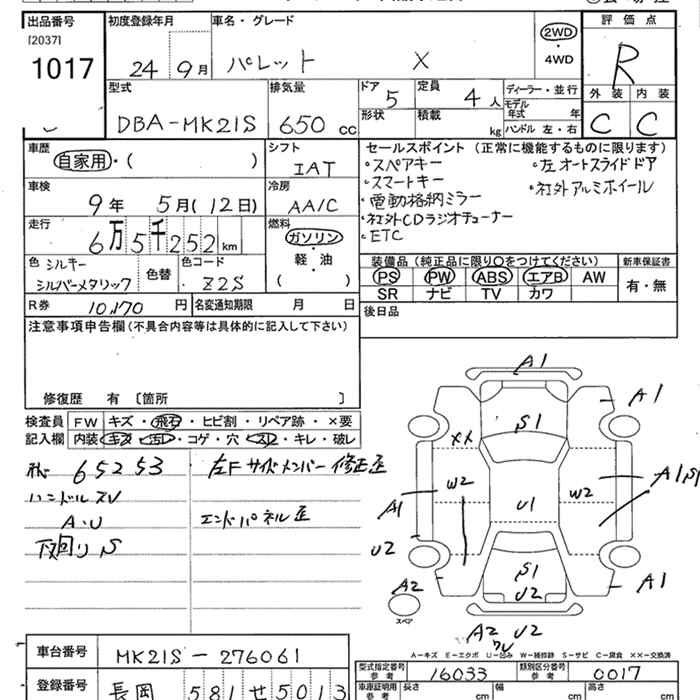 出品番号 初度登録年月 車名・グレード 評価点
[2037]
1017 24 9月 パレット X 2WD・4WD R
型式 排気量 ドア 定員 ディーラー・並行 外装 内装
5 4人 モデル年式 年
DBA-MK21S 650cc 形状 積載 kg ハンドル 左・右 C C
車歴 シフト セールスポイント (正常に機能するものに限ります)
自家用・( ) IAT ・スペアキー ・左オートスライドドア
車検 冷房 ・スマートキー ・社外アルミホイール
9年 5月(12日) AA/C ・電動格納ミラー
走行 燃料 ・社外CDラジオチューナー
6万5千252km ガソリン ・ETC
軽・油
色 シルキーシルバーメタリック 色替 色コード Z2S ( )
装備品 (純正品に限り○をつけてください) 新車保証書
PS PW ABS エアB AW 有・無
SR ナビ TV カワ
R券 10,170円 名変通知期限 月 日
後日品
注意事項申告欄 (不具合内容等は具体的に記入して下さい)
修復歴 有 〔箇所 〕
検査員 FW キズ・飛石・ヒビ割・リペア跡・×要
記入欄 内装 キズ・汚レ・コゲ・穴・スレ・キレ・破レ
65253 左Fサイドメンバー修正歪
ハンドルスレ
A・U エンドパネル歪
下回りS
A1
A1 A1
S1
XX
W2 W2 A1S1
A1 U1
U2
S1
A2 U2 A1
スペア
A2 U2
W
A-キズ E-エクボ U-凹み W-補修跡 S-サビ C-腐食 ××-交換済
車台番号 MK21S-276061
型式指定番号 参考 16033 類別区分番号 参考 0017
登録番号 長岡 581せ5013
車庫証明用 参考 長さ cm 幅 cm 高さ cm